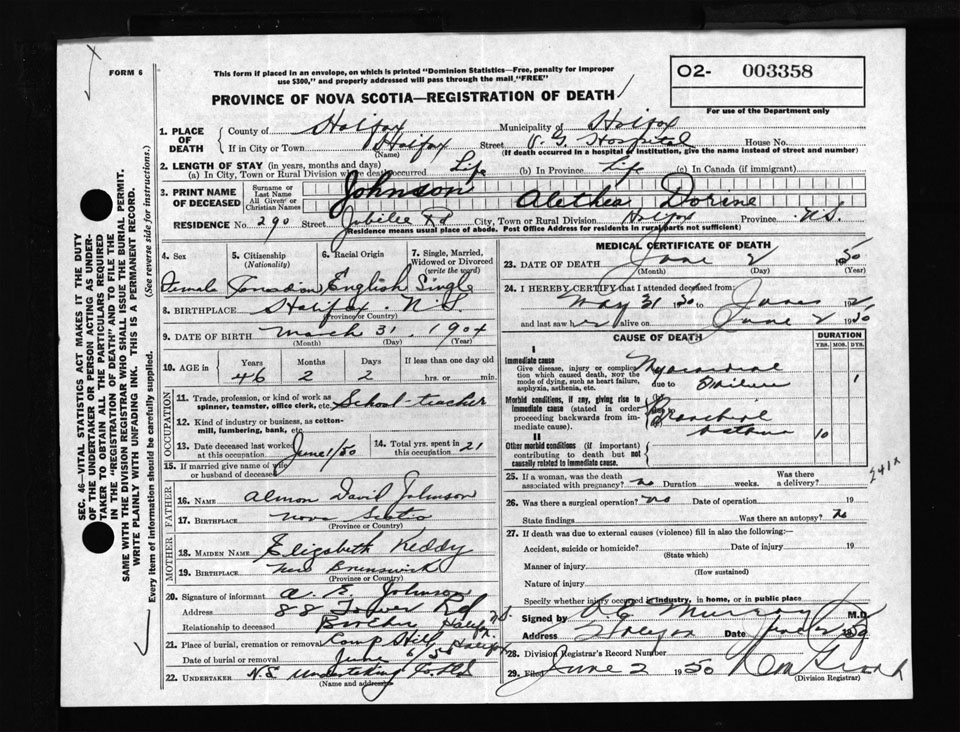 FORM 6
This form if placed in an envelope, on which is printed "Dominion Statistics—Free, penalty for improper
use $300," and properly addressed will pass through the mail "FREE"
O2- 003358
PROVINCE OF NOVA SCOTIA—REGISTRATION OF DEATH
For use of the Department only
1. PLACE OF DEATH
County of Halifax Municipality of Halifax
If in City or Town Halifax Street V. G. Hospital House No.
(Name) (If death occurred in a hospital or institution, give the name instead of street and number)
2. LENGTH OF STAY (in years, months and days)
(a) In City, Town or Rural Division where death occurred Life (b) In Province Life (c) In Canada (if immigrant)
3. PRINT NAME OF DECEASED
Surname or Last Name Johnson
All Given or Christian Names Alethea Dorine
RESIDENCE No. 290 Street Jubilee Rd City, Town or Rural Division Halifax Province N.S.
(Residence means usual place of abode. Post Office Address for residents in rural parts not sufficient)
4. Sex
Female
5. Citizenship (Nationality)
Canadian
6. Racial Origin
English
7. Single, Married, Widowed or Divorced (write the word)
Single
8. BIRTHPLACE Halifax N.S.
(Province or Country)
9. DATE OF BIRTH March 31, 1904
(Month) (Day) (Year)
10. AGE in Years Months Days If less than one day old
46 2 2 hrs. or min.
OCCUPATION
11. Trade, profession, or kind of work as
spinner, teamster, office clerk, etc. School-teacher
12. Kind of industry or business, as cotton-
mill, lumbering, bank, etc.
13. Date deceased last worked
at this occupation June 1/50
14. Total yrs. spent in
this occupation 21
15. If married give name of wife
or husband of deceased
FATHER
16. NAME Almon David Johnson
17. BIRTHPLACE Nova Scotia
(Province or Country)
MOTHER
18. MAIDEN NAME Elizabeth Keddy
19. BIRTHPLACE New Brunswick
(Province or Country)
20. Signature of informant A. E. Johnson
Address 88 Tower Rd Halifax N.S.
Relationship to deceased Brother
21. Place of burial, cremation or removal Camp Hill, Halifax
Date of burial or removal June 5
22. UNDERTAKER N.S. Undertaking Co. Ltd
(Name and address)
MEDICAL CERTIFICATE OF DEATH
23. DATE OF DEATH June 2 1950
(Month) (Day) (Year)
24. I HEREBY CERTIFY that I attended deceased from:
May 31 1950 to June 2 19
and last saw her alive on June 2 1950
CAUSE OF DEATH
DURATION
YRS. MOS. DYS.
I
Immediate cause
Give disease, injury or complication
which caused death, not the
mode of dying, such as heart failure,
asphyxia, asthenia, etc.
Myocardial
due to failure 1
Morbid conditions, if any, giving rise to
immediate cause (stated in order
proceeding backwards from im-
mediate cause).
Bronchial
asthma 10
II
Other morbid conditions (if important)
contributing to death but not
causally related to immediate cause.
241x
25. If a woman, was the death
associated with pregnancy? no Duration weeks. Was there a delivery?
26. Was there a surgical operation? no Date of operation 19
State findings Was there an autopsy? no
27. If death was due to external causes (violence) fill in also the following:—
Accident, suicide or homicide? Date of injury 19
(State which)
Manner of injury
(How sustained)
Nature of injury
Specify whether injury occurred in industry, in home, or in public place
Signed by Murray M.D.
Address Halifax Date
28. Division Registrar's Record Number
29. Filed June 2 1950
(Division Registrar)
SEC. 46—VITAL STATISTICS ACT MAKES IT THE DUTY
OF THE UNDERTAKER OR PERSON ACTING AS UNDER-
TAKER TO OBTAIN ALL THE PARTICULARS REQUIRED
IN THE "REGISTRATION OF DEATH" AND TO FILE THE
SAME WITH THE DIVISION REGISTRAR WHO SHALL ISSUE THE BURIAL PERMIT.
WRITE PLAINLY WITH UNFADING INK. THIS IS A PERMANENT RECORD.
Every item of information should be carefully supplied. (See reverse side for instructions.)